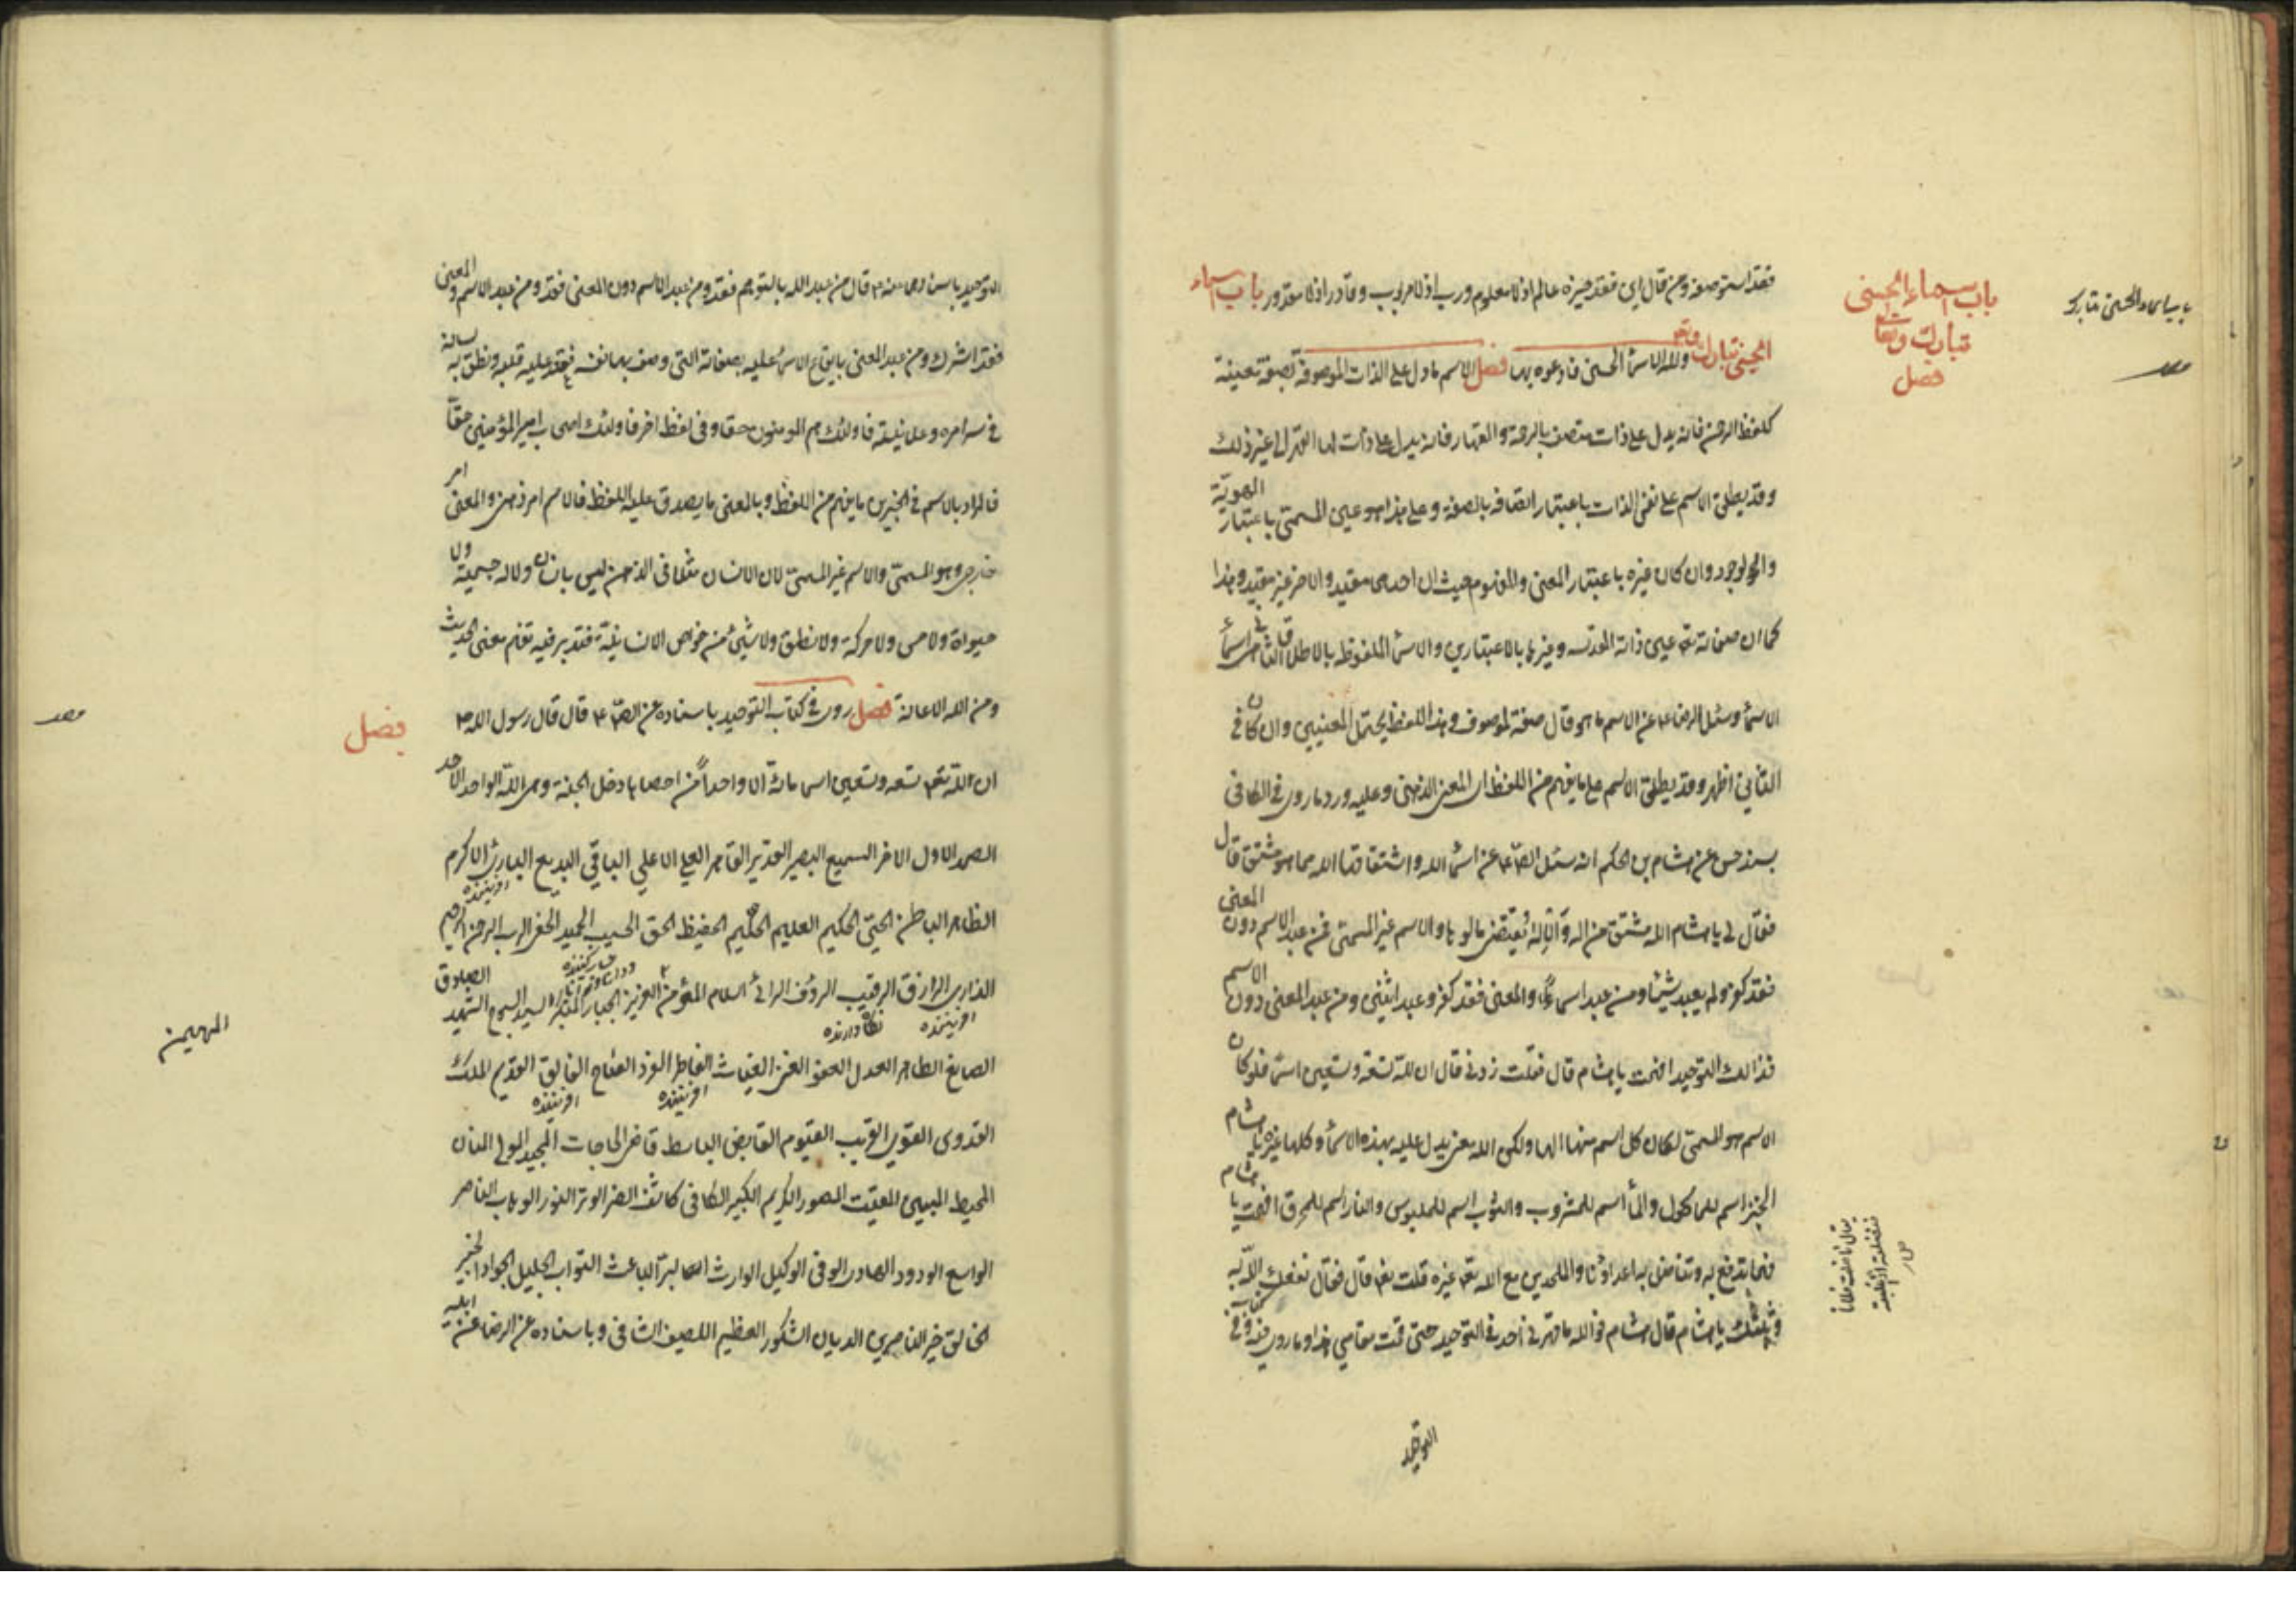 باب اسماء الحسنى
تبارك وتعالى
فصل
باب اسماء الحسنى تبارك
فقد استوصفه ومن قال اين فقد حيزه عالم اذ لا معلوم ورب اذ لا مربوب وقادر اذ لا مقدور باب اسماء
الحسنى تبارك وتعالى ولله الاسماء الحسنى فادعوه بها فصل الاسم ما دل على الذات الموصوفة بصفة معينة
كلفظ الرحمن فانه يدل على ذات متصف بالرحمة والقهار فانه يدل على ذات لها القهر الى غير ذلك
وقد يطلق الاسم على نفس الذات باعتبار اتصافه بالصفة وعلى هذا هو عين المسمى باعتبار الهوية
والوجود وان كان غيره باعتبار المعنى والمفهوم حيث ان احدهما مقيد والاخر غير مقيد وهذا
كما ان صفاته تعـ عين ذاته المقدسه وغيرها بالاعتبارين والاسماء الملفوظه بالاطلاق الثاني اسماء
الاسماء وسئل الرضا ع عن الاسم ما هو قال صفة لموصوف وهذا اللفظ يحتمل المعنيين وان كان في
الثاني اظهر وقد يطلق الاسم على ما يفهم من اللفظ اى المعنى الذهني وعليه ورد ما روى في الكافي
بسند حسن عن هشام بن الحكم انه سئل الصّ ع عن اسماء الله واشتقاقها الله مما هو مشتق قال
فقال لى يا هشام الله مشتق من اله وآله يقتضى مالوها والاسم غير المسمى فمن عبد الاسم دون المعنى
فقد كفر ولم يعبد شيئا ومن عبد الاسم والمعنى فقد كفر وعبد اثنين ومن عبد المعنى دون الاسم
فذالك التوحيد افهمت يا هشام قال فقلت زدني قال ان لله تسعة وتسعين اسما فلو كان
الاسم هو المسمى لكان كل اسم منها الها ولكن الله معنى يدل عليه بهذه الاسماء وكلها غيره يا هشام
الخبز اسم للماكول والماء اسم للمشروب والثوب اسم للملبوس والنار اسم للمحرق افهمت يا هشام
فهما تدفع به وتناضل به اعداءنا والملحدين مع الله تعـ غيره قلت نعم قال فقال نفعك الله به
وثبتك يا هشام قال هشام فوالله ما قهرني احد في التوحيد حتى قمت مقامي هذا وما روى فيه وفي كتاب
التوحيد
التوحيد باسناده عنه ع قال من عبد الله بالتوهم فقد ومن عبد الاسم دون المعنى فقد ومن عبد الاسم والمعنى
فقد اشرك ومن عبد المعنى بايقاع الاسماء عليه بصفاته التى وصف بها نفسه فعقد عليه قلبه ونطق به لسانه
في سرامره وعلانيته فاولئك هم المومنون حقا وفى لفظ اخر فاولئك اصحاب امير المؤمنين حقّا
فالمراد بالاسم في الخبرين ما يفهم من اللفظ وبالمعنى ما يصدق عليه اللفظ فالاسم امر ذهني والمعنى امر
خارجي وهو المسمى والاسم غير المسمى لان الانسان مثلا في الذهن ليس بانسان ولا له جسمية ولا
حيوة ولا حس ولا حركة ولا نطق ولا شئ من خواص الانسانية فتدبر فيه تفهم معنى الحديث
ومن الله الاعانة فصل روى في كتاب التوحيد باسناده عن الصّ ع قال قال رسول الله ص
فصل
ان لله تعـ تسعه وتسعين اسما مائة الا واحداً من احصاها دخل الجنة وهى الله الواحد الاحد
الصمد الاول الاخر السميع البصير القدير القاهر العلي الاعلى الباقي البديع البارئ الاكرم
افريننده
الظاهر الباطن الحيّ الحكيم العليم الحليم الحفيظ الحق الحسيب الحميد الحفي الرب الرحمن الرحيم
الذارى الرازق الرقيب الرؤف الرائى السلام المؤمن العزيز الجبار المتكبر السيد السبوح الشهيد الصادق
المهيمن
افريننده نگاه دارنده
الصانع الطاهر العدل العفو الغفور الغني الغياث الفاطر الفرد الفتاح الفالق القديم الملك
افريننده افريننده
القدوس القوي القريب القيوم القابض الباسط قاضى الحاجات المجيد المولى المنان
المحيط المبين المقيت المصور الكريم الكبير الكافي كاشف الضر الوتر النور الوهاب الناصر
الواسع الودود الهادى الوفى الوكيل الوارث البر الباعث التواب الجليل الجواد الخبير
الخالق خير الناصرين الديان الشكور العظيم اللطيف الشافى وباسناده عن الرضا عن ابيه